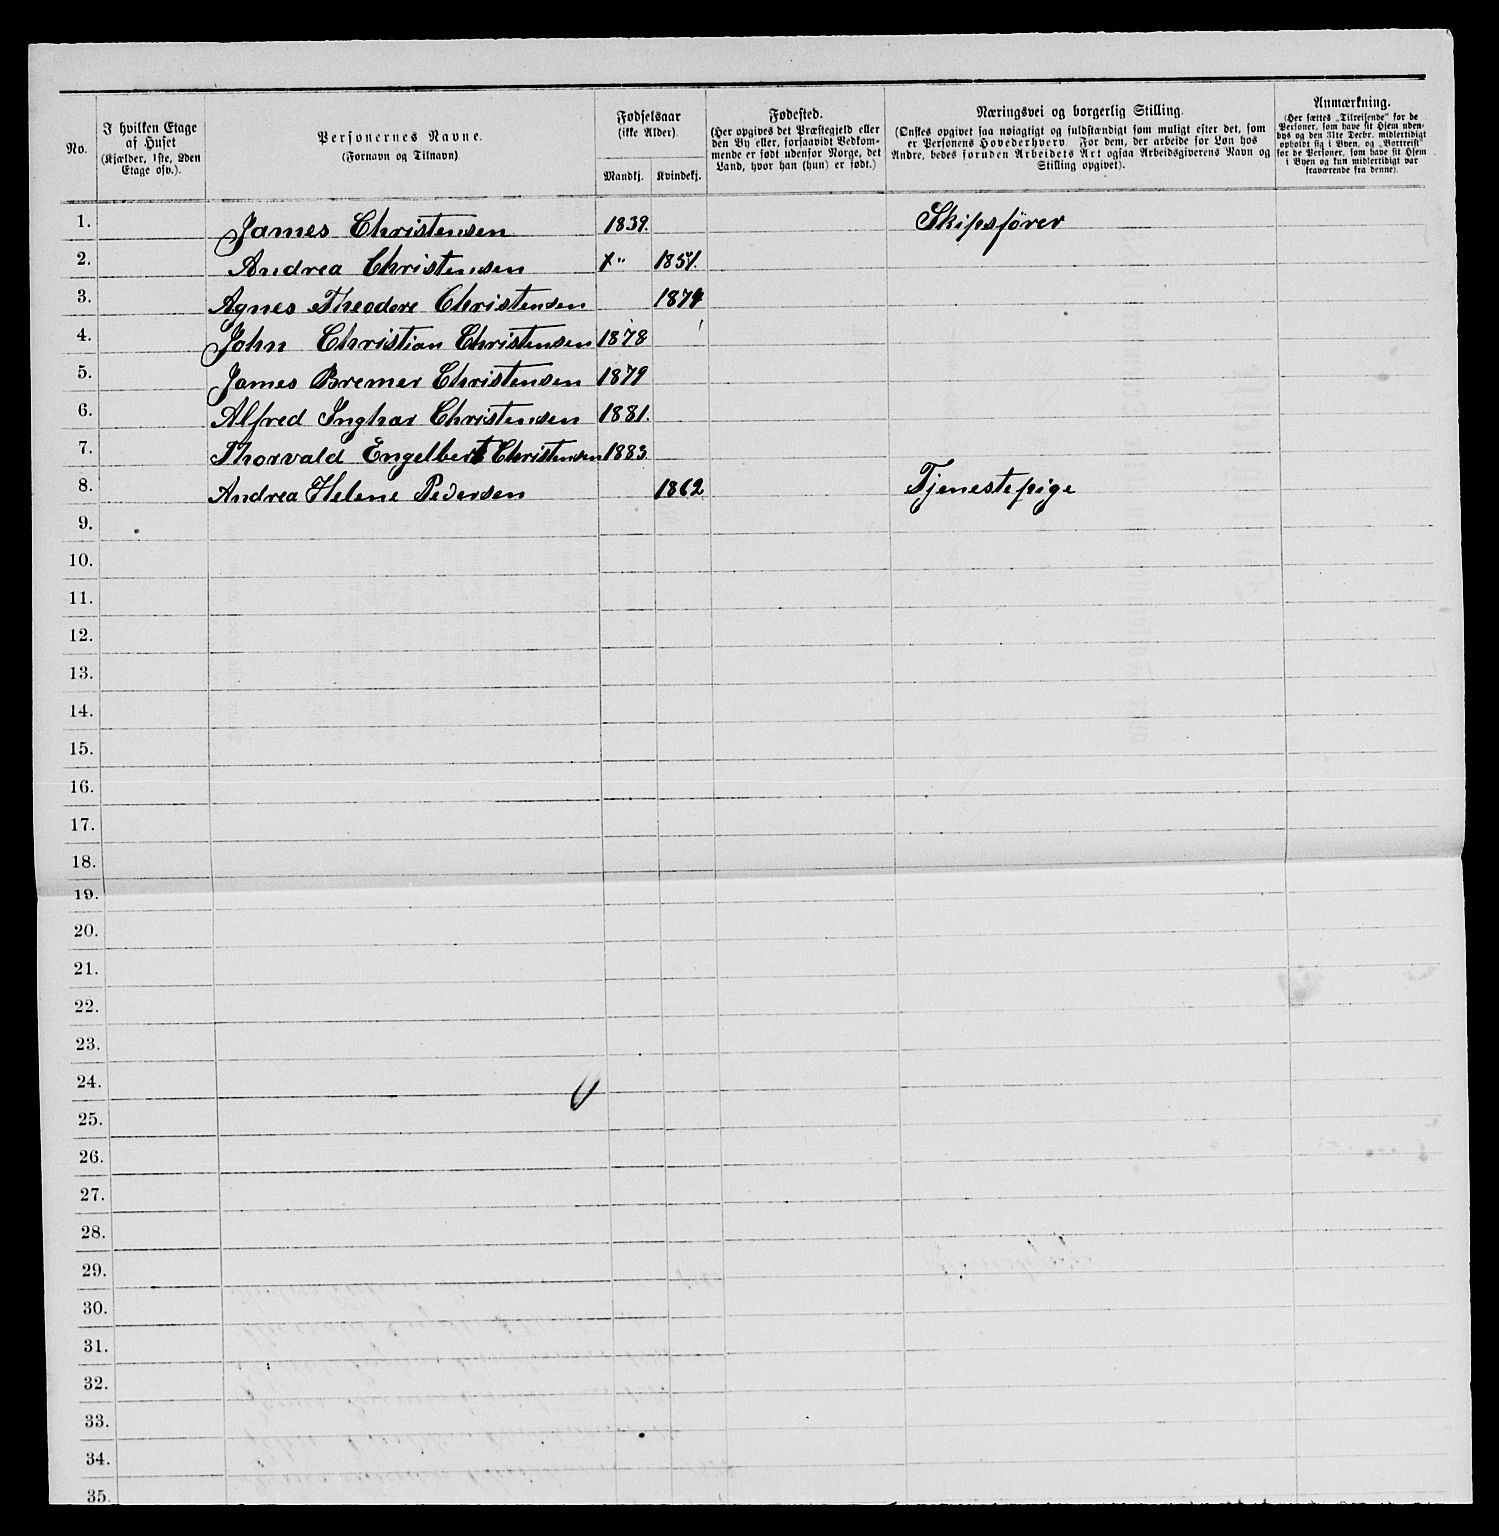 No.
I hvilken Etage af Huset
(Kjælder, 1ste, 2den Etage osv.).
Personernes Navne.
(Fornavn og Tilnavn)
Fødselsaar
(ikke Alder)
Mandkj.
Kvindekj.
Fødested.
(Her opgives det Præstegjeld eller
den By eller, forsaavidt Vedkom-
mende er født udenfor Norge, det
Land, hvor han (hun) er født.)
Næringsvei og borgerlig Stilling.
(Ønskes opgivet saa nøiagtigt og fuldstændigt som muligt efter det, som
er Personens Hovederhverv. For dem, der arbeide for Løn hos
Andre, bedes foruden Arbeidets Art ogsaa Arbeidsgiverens Navn og
Stilling opgivet).
Anmærkning.
(Her sættes „Tilreisende” for de
Personer, som have sit Hjem uden-
bys og den 31te Decbr. midlertidigt
opholdt sig i Byen, og „Bortreist”
for de Personer, som have sit Hjem
i Byen og kun midlertidigt var
fraværende fra denne).
1. James Christensen 1839. Skipsfører
2. Andrea Christensen 1851.
3. Agnes Theodore Christensen 1874
4. John Christian Christensen 1878
5. James Bremer Christensen 1879
6. Alfred Inghar Christensen 1881.
7. Thorvald Engelbert Christensen 1883
8. Andrea Helene Pedersen 1862 Tjenestepige
9.
10.
11.
12.
13.
14.
15.
16.
17.
18.
19.
20.
21.
22.
23.
24.
25.
26.
27.
28.
29.
30.
31.
32.
33.
34.
35.